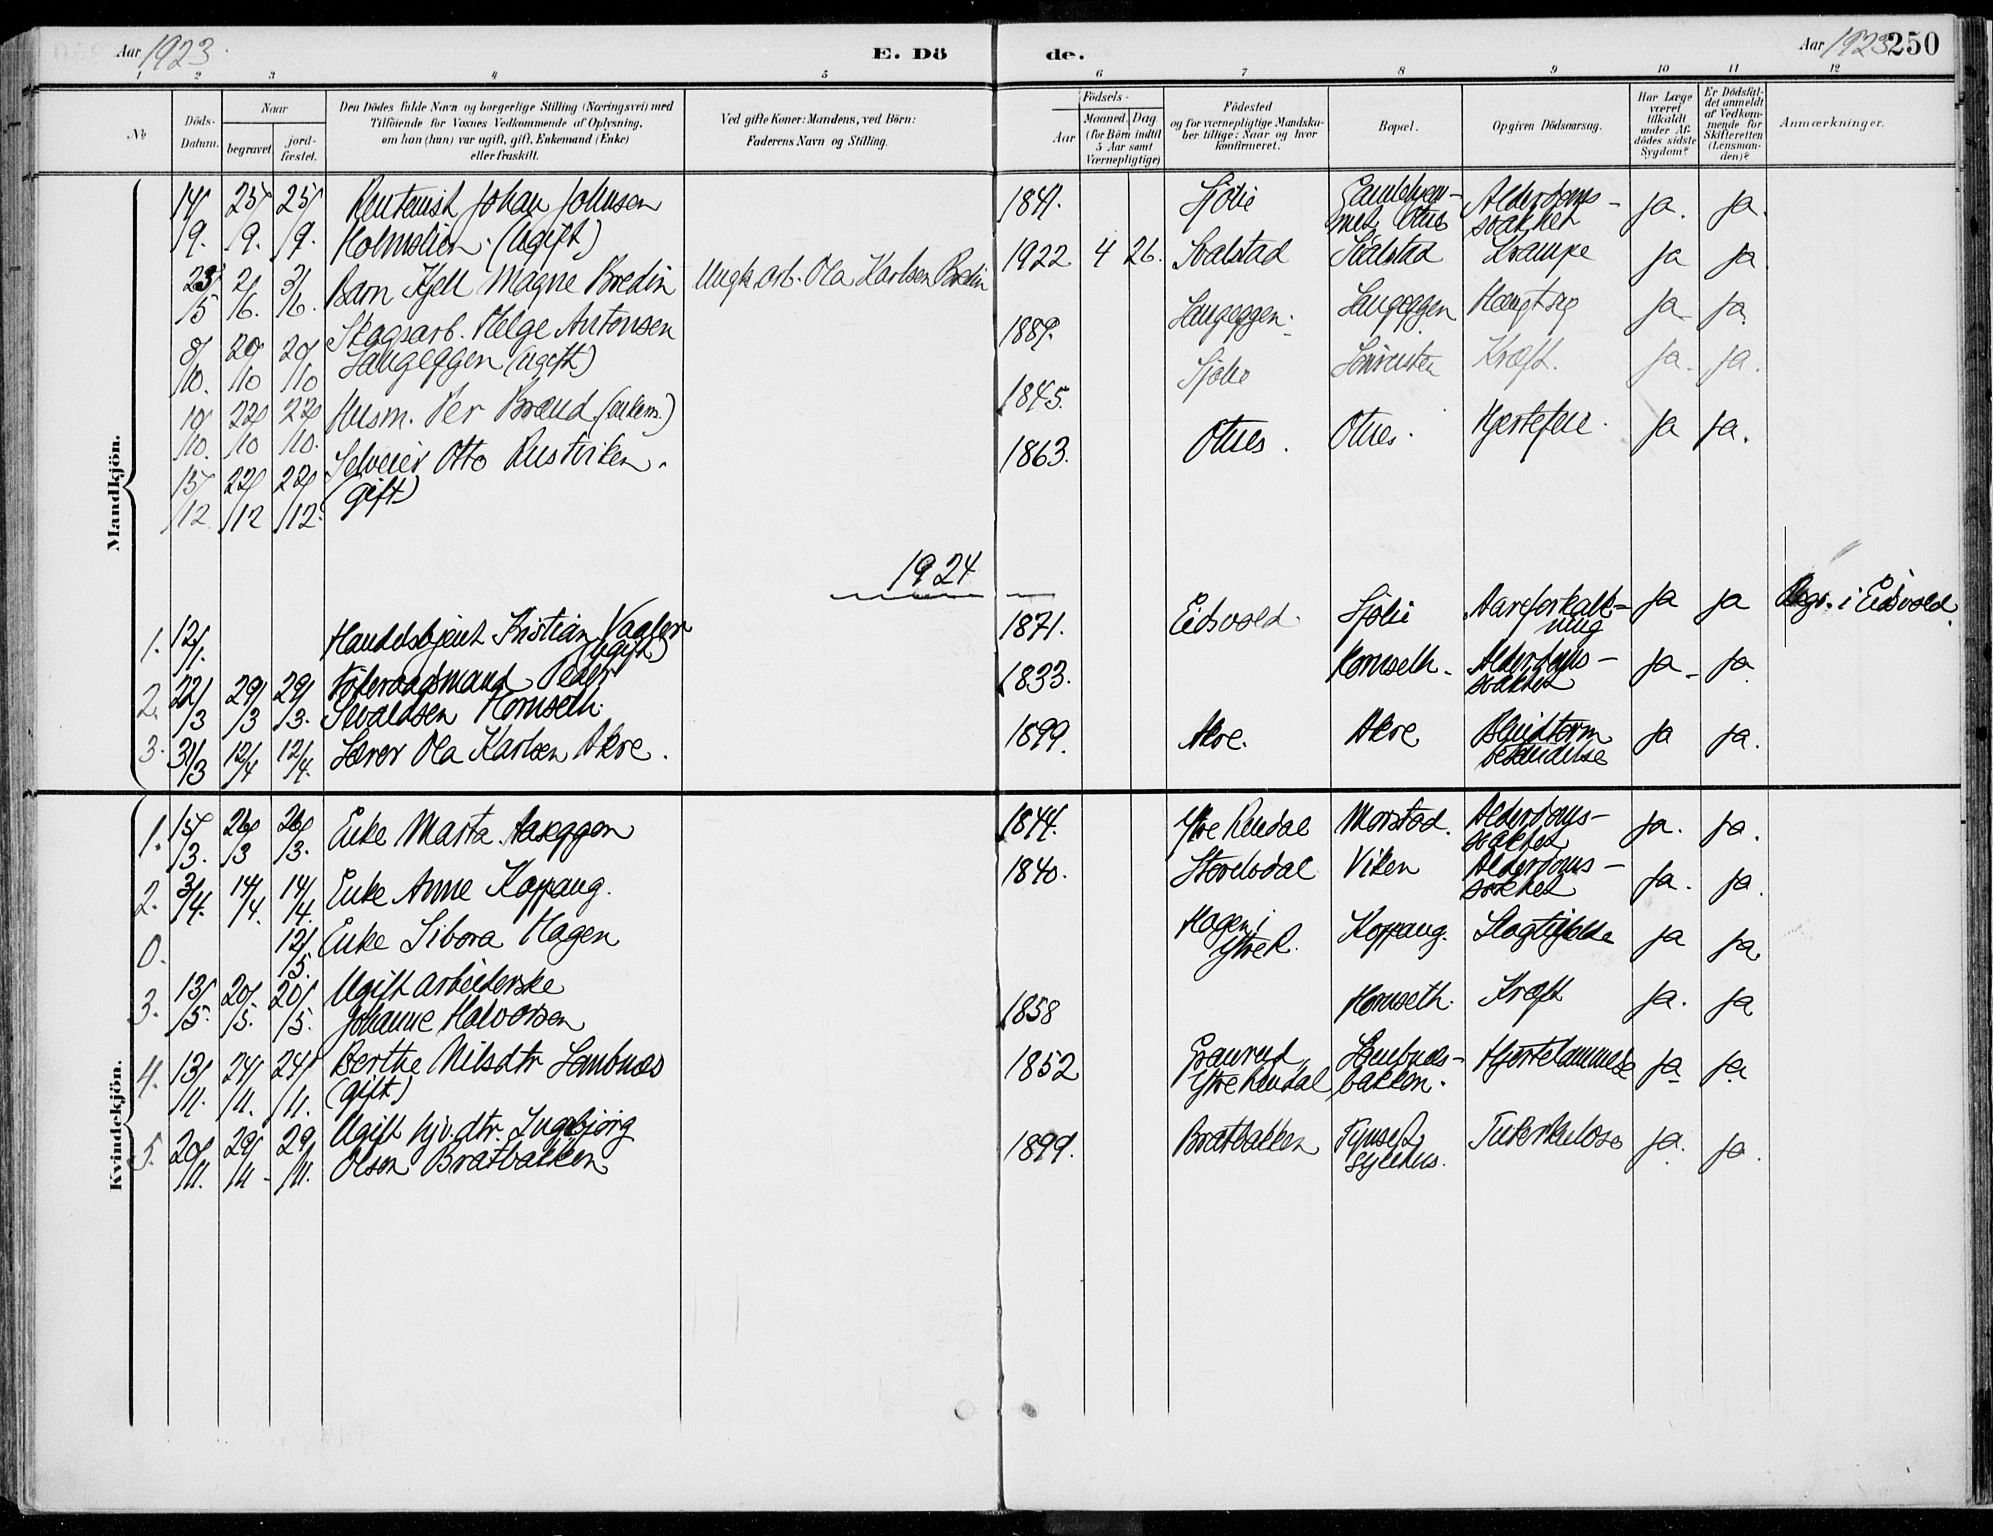 Aar 1923. E. Dö de. Aar 1923 250
1 2 3 4 5 6 7 8 9 10 11 12
№
Döds-Datum.
Naar
begravet.
jord-fæstet.
Den Dödes fulde Navn og borgerlige Stilling (Næringsvei) med
Tilföiende for Voxnes Vedkommende af Oplysning,
om han (hun) var ugift, gift, Enkemand (Enke)
eller fraskilt.
Ved gifte Koner: Mandens, ved Börn:
Faderens Navn og Stilling.
Födsels-
Aar
Maaned. Dag
(for Börn indtil
5 Aar samt
Værnepligtige)
Födested
og for værnepligtige Mandska-
ber tillige: Naar og hvor
konfirmeret.
Bopæl.
Opgiven Dödsaarsag.
Har Læge
været
tilkaldt
under Af-
dödes sidste
Sygdom?
Er Dödsfal-
det anmeldt
af Vedkom-
mende for
Skifteretten
(Lensman-
den)?
Anmærkninger.
Mandkjön.
14/9. 25/9. 25/9. Rentenist Johan Johnsen 1841. Sjølie Gamlehjem- Alderdoms- ja. ja.
Holmslien. (Ugift) met Otnes svakhet
23/5 2/6. 3/6. Barn Kjell Magne Bredin Ungk. arb. Ola Karlsen Bredin 1922 4 26. Svalstad Svalstad Krampe ja ja
8/10. 20/10 20/10 Skogsarb. Helge Antonsen 1889. Haugeggen. Haugeggen ja ja.
Haugeggen (ugift)
10/10. 22/10 22/10. Husm. Per Brænd. (enkem.) 1845. Sjølie Kræft. ja. ja.
15/12. 22/12 22/12. Selveier Otto Rustviken. 1863. Otnes. Otnes. Hjertefeil. ja ja.
(gift)
1924
1. 12/1. Handelsbetjent Kristian Vaalen 1871. Eidsvold. Sjølie Aareforkalk- ja ja Begr. i Eidsvold.
(ugift) ning
2. 22/3 29/3 29/3. Føderaadsmand Peder 1833. Hornseth. Alderdoms- ja. ja.
Sivaldsen Hornseth. svakhet
3. 31/3 12/4 12/4. Lærer Ola Karlsen Akre. 1899. Akre. Akre Blindtarm ja ja.
betændelse
Kvindekjön.
1. 15/3. 26/3 26/3. Enke Marta Aaseggen 1844. Ytre Rendal Morstad. Alderdoms- ja. ja.
svakhet
2. 3/4. 14/4. 14/4. Enke Anne Koppang. 1840. Storelvdal Viken Alderdoms- ja. ja.
svakhet
0. 12/5. Enke Sibora Hagen Hagen i Koppang. Slagtilfelde ja ja.
Ytre R.
3. 13/5. 20/5. 20/5. Ugift arbeiderske 1858 Hornseth. Kræft ja. ja
Johanne Halvorsen
4. 13/11. 24/11. 24/11. Berthe Nilsdtr Lombnæs 1852 Granrud, Lombnæs- Hjertelammelse ja ja.
(gift) Ytre Rendal bakken.
5. 20/11. 29/11. 29/11. Ugift hjv. dtr. Ingebjørg 1899. Bratbakken Tynset Tuberkulose ja. ja.
Olsen Bratbakken sykehus.